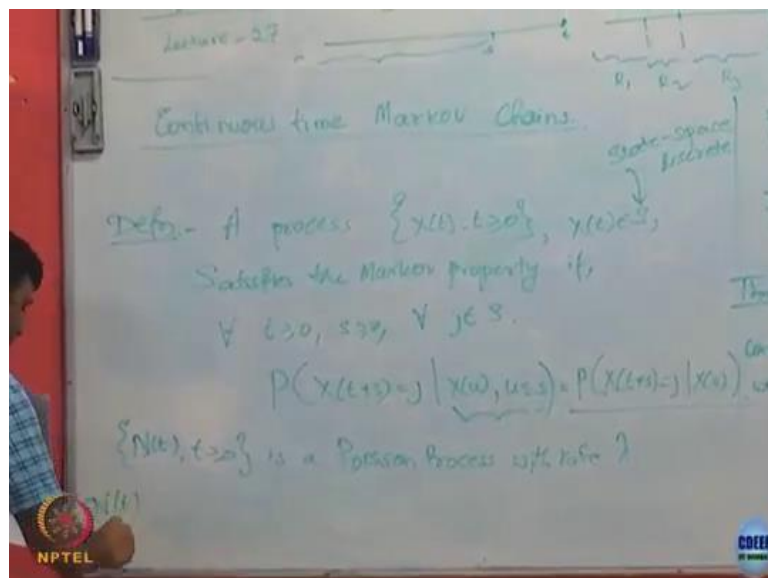 Lecture - 27
R₁ R₂ R₃
Continuous time Markov Chains.
State-space
discrete
Defn:- A process {X(t), t≥0}, X(t)∈S,
Satisfies the Markov property if,
∀ t≥0, s≥0, ∀ j∈S.
P(X(t+s)=j | X(u), u≤s) = P(X(t+s)=j | X(s))
{N(t), t≥0} is a Poisson Process with rate λ
N(t)
NPTEL
CDEEP